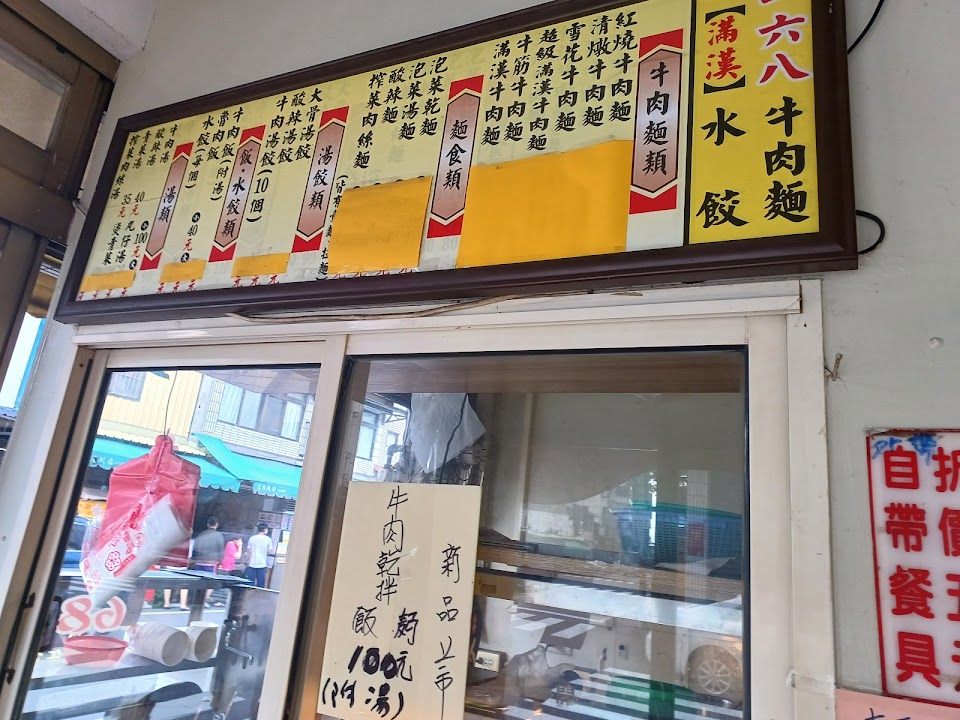 六八
牛肉麵
【滿漢】水餃
牛肉麵類
紅燒牛肉麵
清燉牛肉麵
雪花牛肉麵
超級滿漢牛肉麵
牛筋牛肉麵
滿漢牛肉麵
麵食類
泡菜乾麵
泡菜湯麵
酸辣麵
榨菜肉絲麵
湯餃類
大骨湯餃
酸辣湯餃
牛肉湯餃(10個)
飯.水餃類
牛肉飯(附湯)
水餃(每個)
40元
湯類
牛肉湯
酸辣湯
青菜湯
榨菜肉絲湯
100元
40元
35元
燙青菜
新品上市
牛肉乾拌
飯
100元
(附湯)
68
自帶餐具
折價